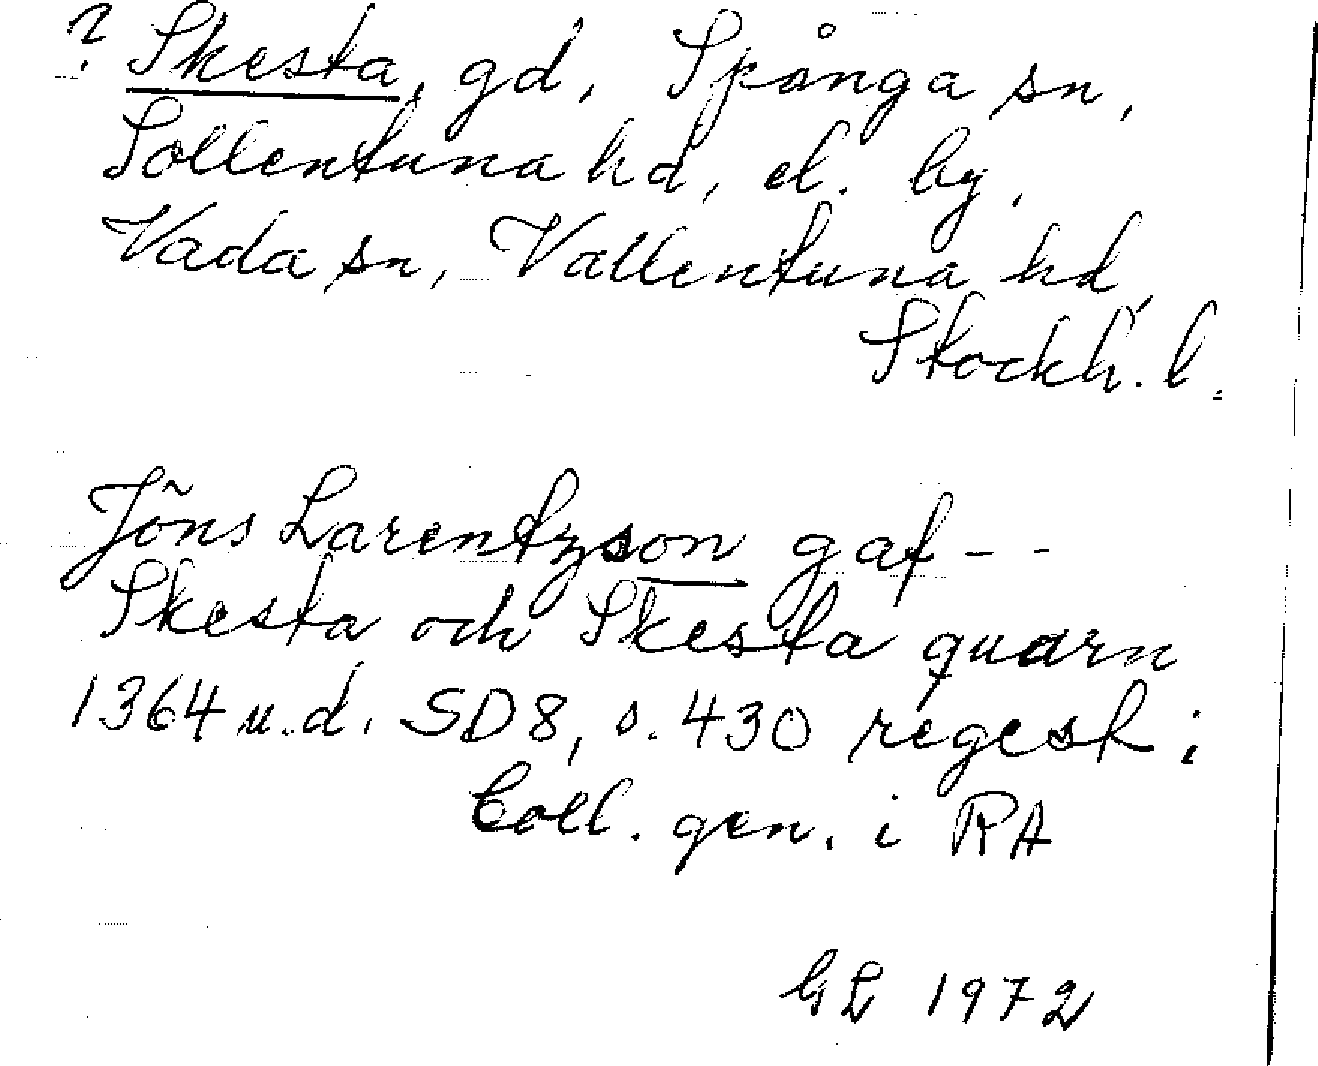 ? Skesta, gd, Spånga sn,
Sollentuna hd, el. by,
Vada sn, Vallentuna hd,
Stockh. l.
Jöns Larentzson gaf - -
Skesta och Skesta quarn
1364 u.d. SD8, s. 430 regest i
Coll. gen. i RA
GL 1972